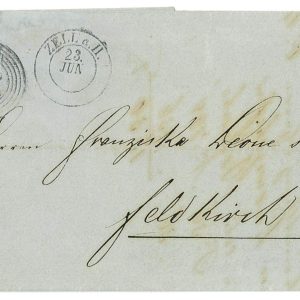 ZELL a. H.
23.
JUN
Herrn Franziska Leone s
Feldkirch